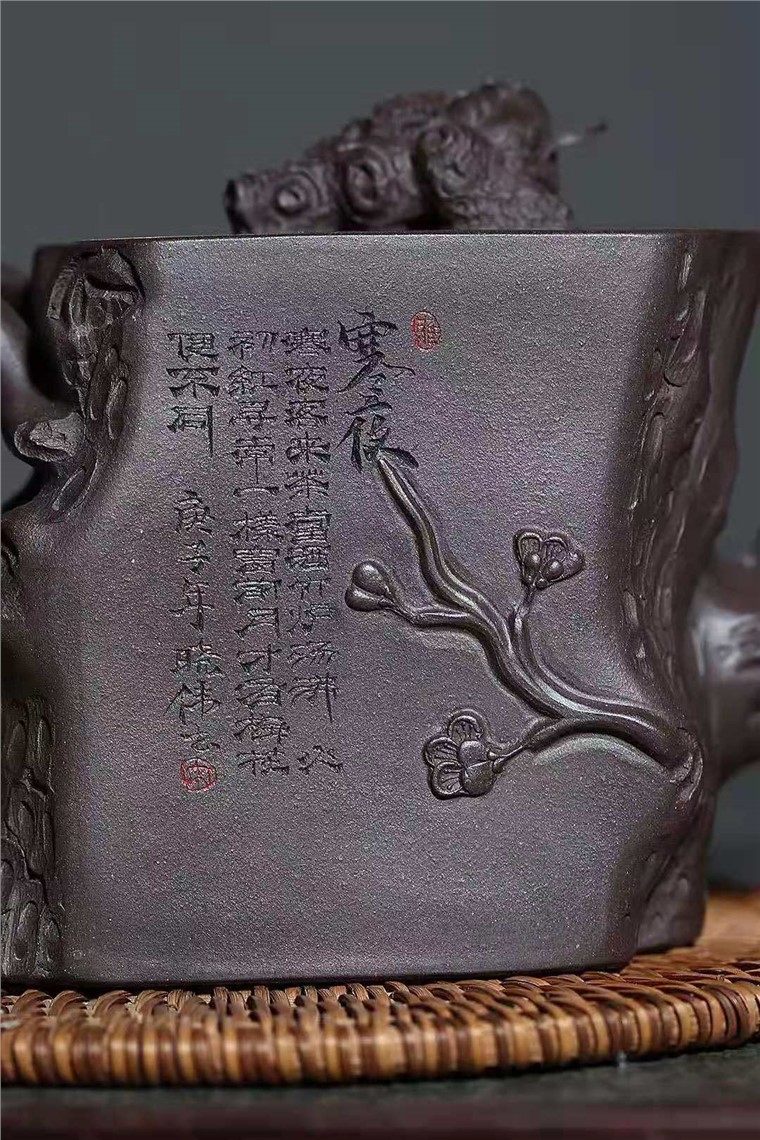 寒夜
寒夜客来茶當酒竹炉汤沸火
初紅寻常一樣窗前月才有梅花
便不同 庚子年晓伟